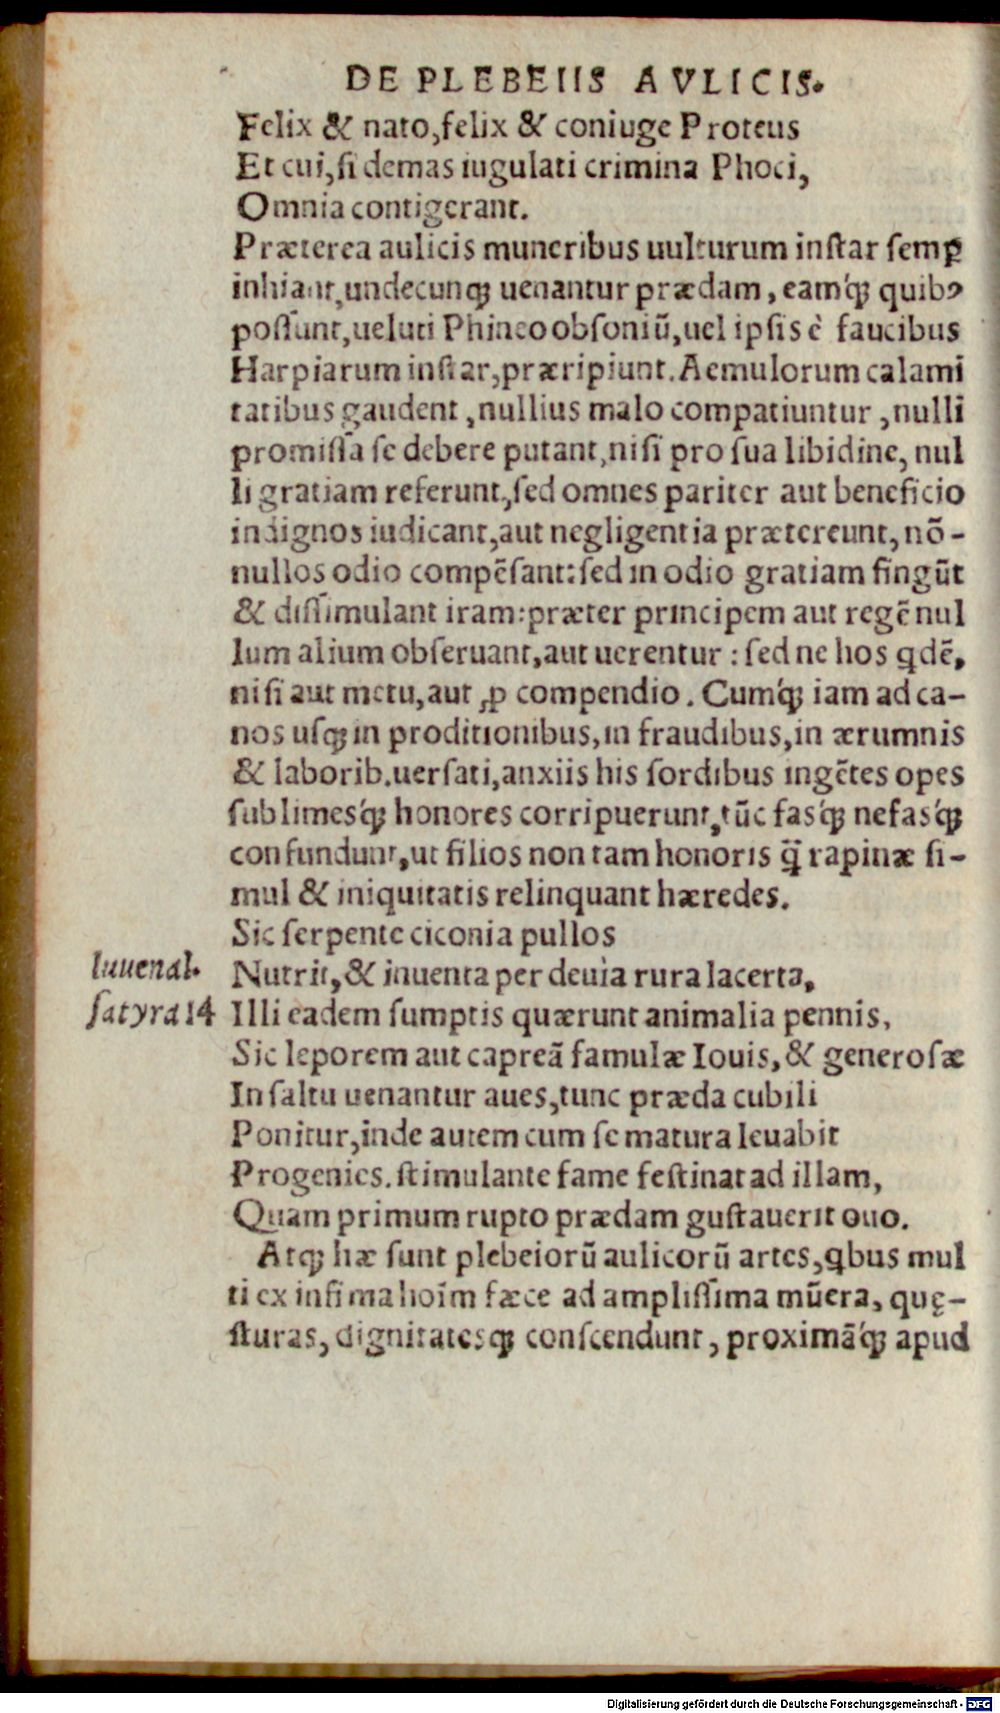 DE PLEBEIIS AVLICIS.
Felix & nato, felix & coniuge Proteus
Et cui, si demas iugulati crimina Phoci,
Omnia contigerant.
Præterea aulicis muneribus uulturum instar semꝑ
inhiant, undecunqꝫ uenantur prædam, eamq́ꝫ quibꝰ
possunt, ueluti Phineo obsoniũ, uel ipsis è faucibus
Harpiarum instar, præripiunt. Aemulorum calami
tatibus gaudent, nullius malo compatiuntur, nulli
promissa se debere putant, nisi pro sua libidine, nul
li gratiam referunt, sed omnes pariter aut beneficio
indignos iudicant, aut negligentia prætereunt, nõ-
nullos odio compẽsant: sed in odio gratiam fingũt
& dissimulant iram: præter principem aut regẽ nul
lum alium obseruant, aut uerentur: sed ne hos ꝗdẽ,
nisi aut metu, aut ꝓ compendio. Cumq́ꝫ iam ad ca-
nos usqꝫ in proditionibus, in fraudibus, in ærumnis
& laborib. uersati, anxiis his sordibus ingẽtes opes
sublimesq́ꝫ honores corripuerunt, tũc fasq́ꝫ nefasq́ꝫ
confundunt, ut filios non tam honoris q̃ rapinæ si-
mul & iniquitatis relinquant hæredes.
Sic serpente ciconia pullos
Iuuenal.
Nutrit, & inuenta per deuia rura lacerta,
satyra 14
Illi eadem sumptis quærunt animalia pennis,
Sic leporem aut capreã famulæ Iouis, & generosæ
In saltu uenantur aues, tunc præda cubili
Ponitur, inde autem cum se matura leuabit
Progenies. stimulante fame festinat ad illam,
Quam primum rupto prædam gustauerit ouo.
Atqꝫ hæ sunt plebeiorũ aulicorũ artes, ꝗbus mul
ti ex infima hoĩm fæce ad amplissima mũera, quę-
sturas, dignitatesqꝫ conscendunt, proximãq́ꝫ apud
Digitalisierung gefördert durch die Deutsche Forschungsgemeinschaft - DFG